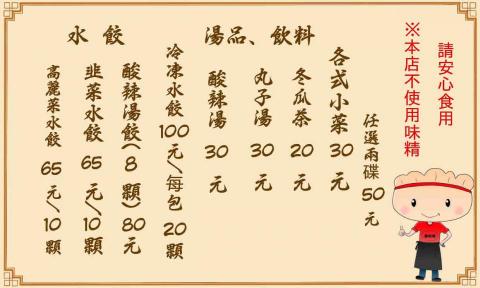 請安心食用
※本店不使用味精
湯品、飲料
任選兩碟50元
各式小菜30元
冬瓜茶20元
丸子湯30元
酸辣湯30元
水餃
冷凍水餃100元/每包20顆
酸辣湯餃(8顆)80元
韭菜水餃65元/10顆
高麗菜水餃65元/10顆